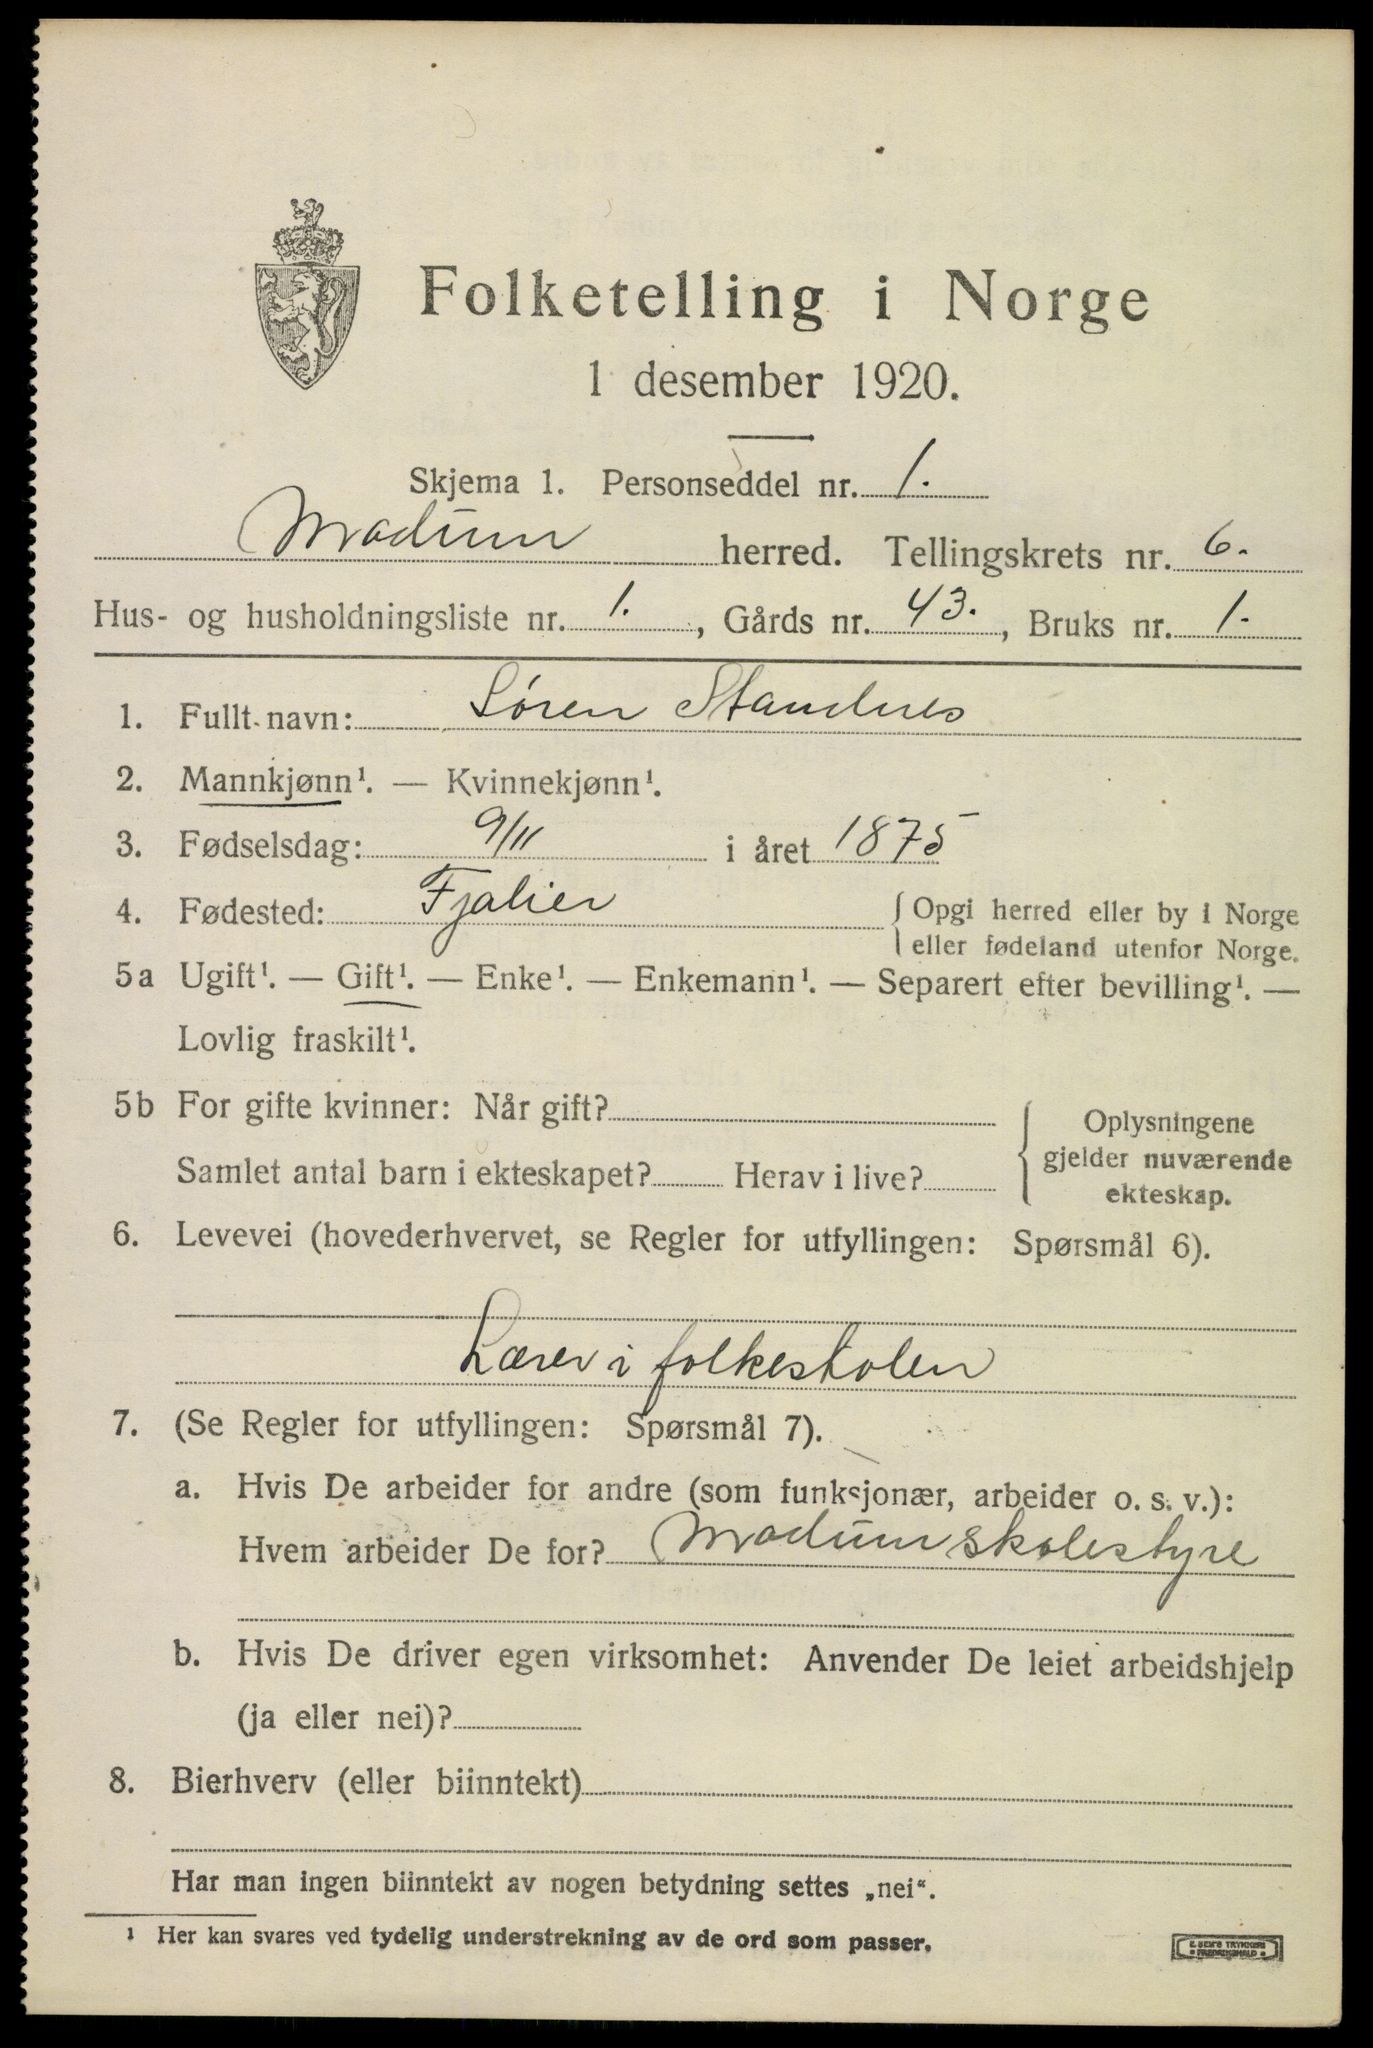 Folketelling i Norge
1 desember 1920.
Skjema 1. Personseddel nr. 1.
Modum herred. Tellingskrets nr. 6.
Hus- og husholdningsliste nr. 1., Gårds nr. 43., Bruks nr. 1.
1. Fullt navn: Søren Standnes
2. Mannkjønn¹. — Kvinnekjønn¹.
3. Fødselsdag: 9/11 i året 1875
4. Fødested: Fjalier { Opgi herred eller by i Norge
eller fødeland utenfor Norge.
5a Ugift¹. — Gift¹. — Enke¹. — Enkemann¹. — Separert efter bevilling¹. —
Lovlig fraskilt¹.
5b For gifte kvinner: Når gift?
Samlet antal barn i ekteskapet? Herav i live?
Oplysningene
gjelder nuværende
ekteskap.
6. Levevei (hovederhvervet, se Regler for utfyllingen: Spørsmål 6).
Lærer i folkeskolen
7. (Se Regler for utfyllingen: Spørsmål 7).
a. Hvis De arbeider for andre (som funksjonær, arbeider o. s. v.):
Hvem arbeider De for? Modum skolestyre
b. Hvis De driver egen virksomhet: Anvender De leiet arbeidshjelp
(ja eller nei)?
8. Bierhverv (eller biinntekt)
Har man ingen biinntekt av nogen betydning settes „nei“.
¹ Her kan svares ved tydelig understrekning av de ord som passer.
E. SEM'S TRYKKERI
• FREDRIKSHALD •